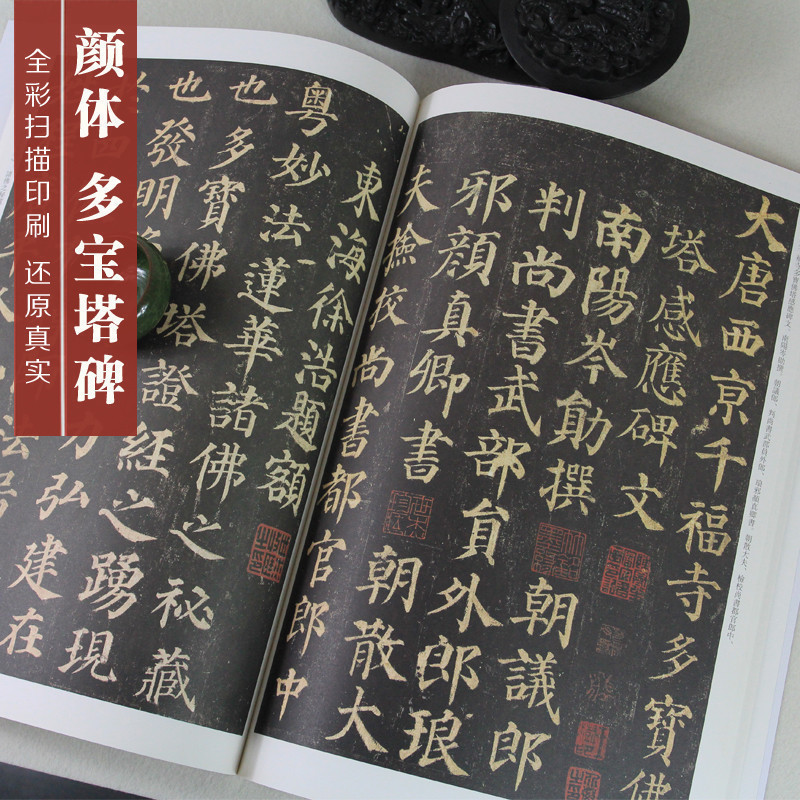 颜体 多宝塔碑
全彩扫描印刷 还原真实
大唐西京千福寺多寶佛
塔感應碑文
南陽岑勛撰 朝議郎
判尚書武部員外郎琅
邪顏真卿書 朝散大
夫撿挍尚書都官郎中
東海徐浩題額
粵妙法蓮華諸佛之祕藏
也多寶佛塔證經之踴現
也發明
弘建在